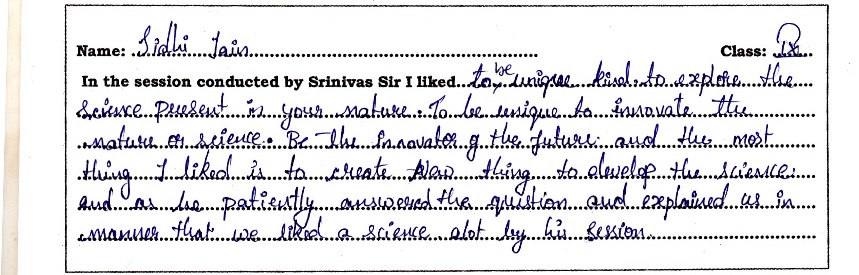 Name: Sidhi Jain Class: IX
In the session conducted by Srinivas Sir I liked to be unique kind. to explore the
science present in your nature. To be unique to innovate the
nature or science. Be the innovator of the future. and the most
thing I liked is to create New thing to develop the science.
and as he patiently answered the question and explained us in
manner that we liked a science alot by his session.